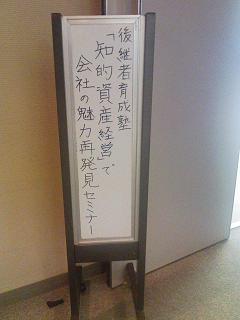 後継者育成塾
「知的資産経営」で
会社の魅力再発見セミナー